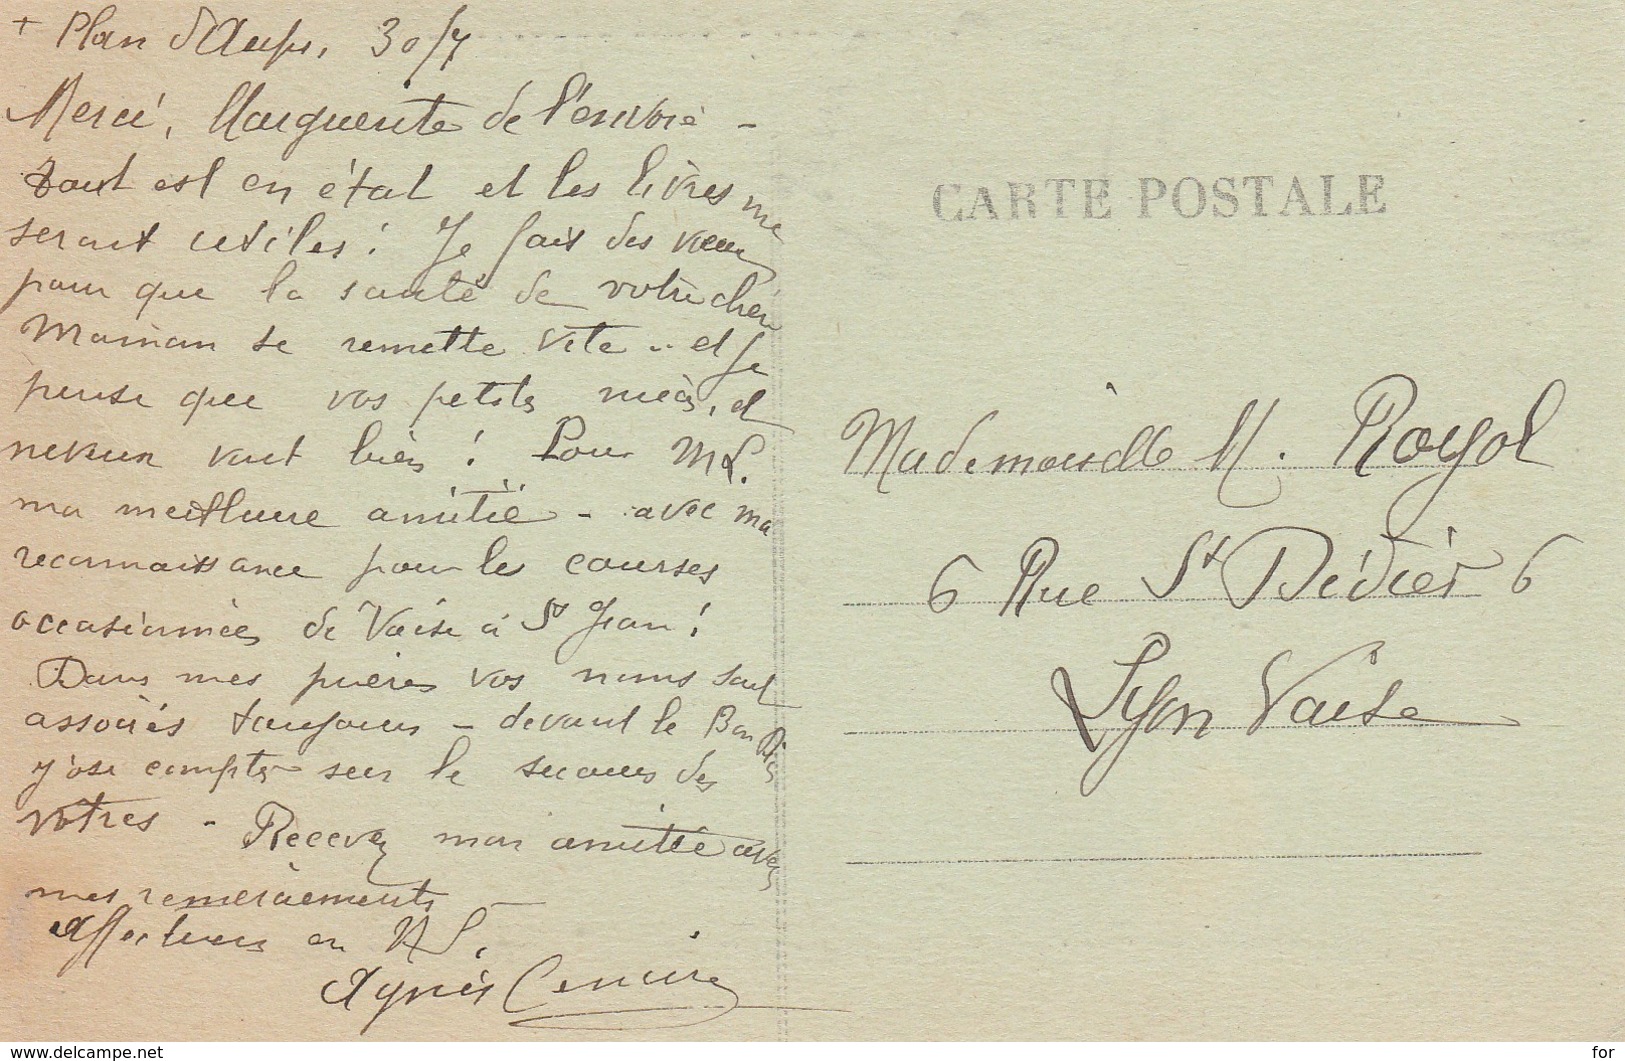 + Plan d'Aups, 30/7
Merci, Marguerite de l'envoi -
tout est en état et les livres me
seront utiles! Je fais des vœux
pour que la santé de votre chère
Maman se remette vite .. et je
pense que vos petits nièces, et
neveux vont bien! Pour M L.
ma meilleure amitié - avec ma
reconnaissance pour les courses
occasionnées de Vaise à St Jean!
Dans mes prières vos noms sont
associés toujours - devant le Bon Dieu
j'ose compter sur le secours des
vôtres - Recevez mon amitié avec
mes remerciements
Affectueux en N.S.
Agnès
CARTE POSTALE
Mademoiselle M. Royol
6 Rue St Didier 6
Lyon Vaise
www.delcampe.net
for